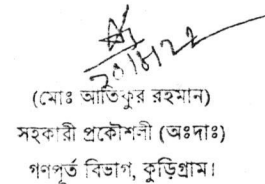 ২০।৮।২২
(মোঃ আতিকুর রহমান)
সহকারী প্রকৌশলী (অঃদাঃ)
গণপূর্ত বিভাগ, কুড়িগ্রাম।